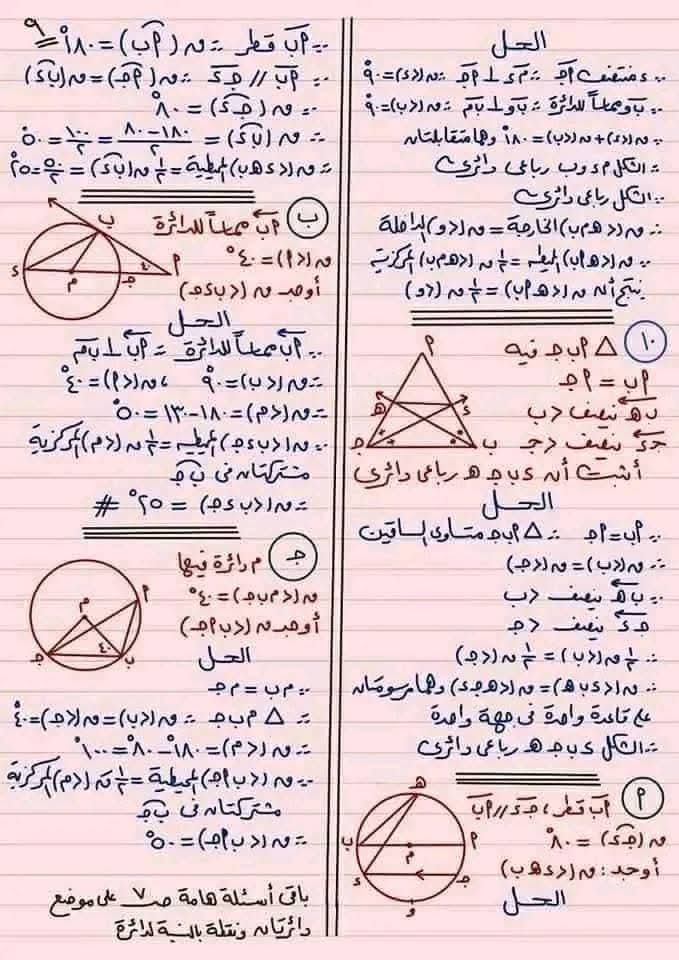 ٩
الحل
∵ ء منتصف أج ∴ م ء ⊥ أج ∴ ق(∠ء) = ٩٠°
∵ ب و مماساً للدائرة ∴ ب و ⊥ ب م ∴ ق(∠ب) = ٩٠°
∴ ق(∠ء) + ق(∠ب) = ١٨٠° وهما متقابلتان
∴ الشكل م ء و ب رباعي دائري
∵ الشكل رباعي دائري
∴ ق(∠هـ م ب) الخارجة = ق(∠و) الداخلة
∵ ق(∠هـ أ ب) المحيطية = ½ ق(∠هـ م ب) المركزية
ينتج أن ق(∠هـ أ ب) = ½ ق(∠و)
١٠
△ أ ب ج فيه
أب = أج
ب هـ ينصف ∠ب
ج ء ينصف ∠ج
أثبت أن ء ب ج هـ رباعي دائري
أ
هـ
ء
ج
ب
الحل
∵ أب = أج ∴ △ أ ب ج متساوي الساقين
∴ ق(∠ب) = ق(∠ج)
∵ ب هـ ينصف ∠ب
ج ء ينصف ∠ج
∴ ½ ق(∠ب) = ½ ق(∠ج)
∴ ق(∠ء ب هـ) = ق(∠هـ ج ء) وهما مرسومتان
على قاعدة واحدة في جهة واحدة
∴ الشكل ء ب ج هـ رباعي دائري
أ
أب قطر ، ج ء // أب
ق(ج ء) = ٨٠°
أوجد : ق(∠ء هـ ب)
هـ
ب
أ
م
ء
ج
و
الحل
∵ أب قطر ∴ ق(أب) = ١٨٠°
∵ أب // ج ء ∴ ق(أج) = ق(ب ء)
∵ ق(ج ء) = ٨٠°
∴ ق(ب ء) = (١٨٠ - ٨٠)/٢ = ١٠٠/٢ = ٥٠°
∴ ق(∠ء هـ ب) المحيطية = ½ ق(ب ء) = ٥٠/٢ = ٢٥°
ب
أب مماساً للدائرة
ق(∠أ) = ٤٠°
أوجد ق(∠ب ء ج)
ب
ء
م
ج
٤٠
أ
الحل
∵ أب مماساً للدائرة ∴ أب ⊥ ب م
∴ ق(∠ب) = ٩٠° ، ق(∠أ) = ٤٠°
∴ ق(∠م) = ١٨٠ - ١٣٠ = ٥٠°
∵ ق(∠ب ء ج) المحيطية = ½ ق(∠م) المركزية
مشتركتان في ب ج
∴ ق(∠ب ء ج) = ٢٥° #
جـ
م دائرة فيها
ق(∠م ب ج) = ٤٠°
أوجد ق(∠ب أ ج)
م
أ
ج
٤٠
ب
الحل
∵ م ب = م ج
∴ △ م ب ج ∴ ق(∠ب) = ق(∠ج) = ٤٠°
∴ ق(∠م) = ١٨٠° - ٨٠° = ١٠٠°
∵ ق(∠ب أ ج) المحيطية = ½ ق(∠م) المركزية
مشتركتان في ب ج
∴ ق(∠ب أ ج) = ٥٠°
باقي أسئلة هامة صـ ٧ على موضع
دائرتان ونقطة بالنسبة لدائرة